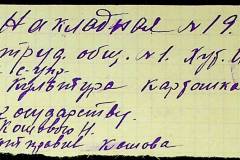 Накладная № 19.
труд. общ. № 1. Хут.
с-упр
Культура картошка
Государству.
Кошового Н.
отправил Кашова